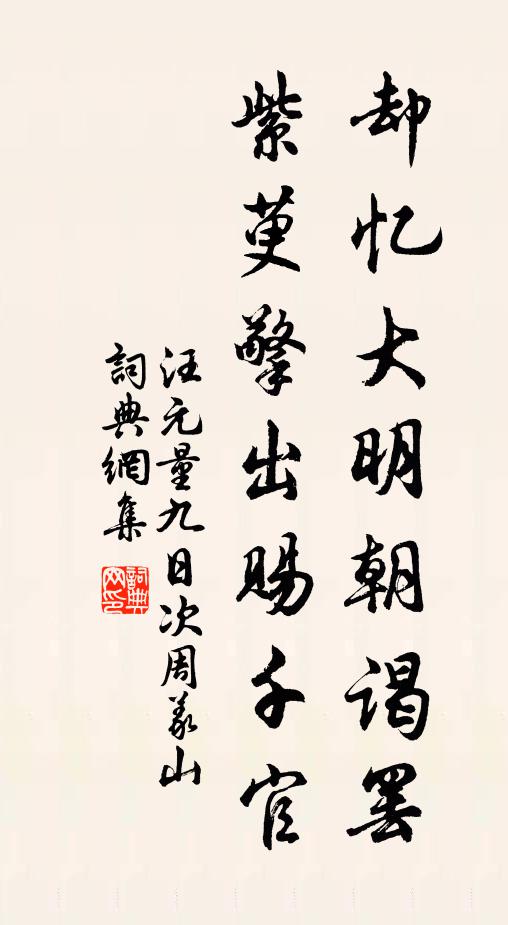 却忆大明朝谒罢
紫萸擎出赐千官
汪元量九日次周义山
詞典網集
詞典网印